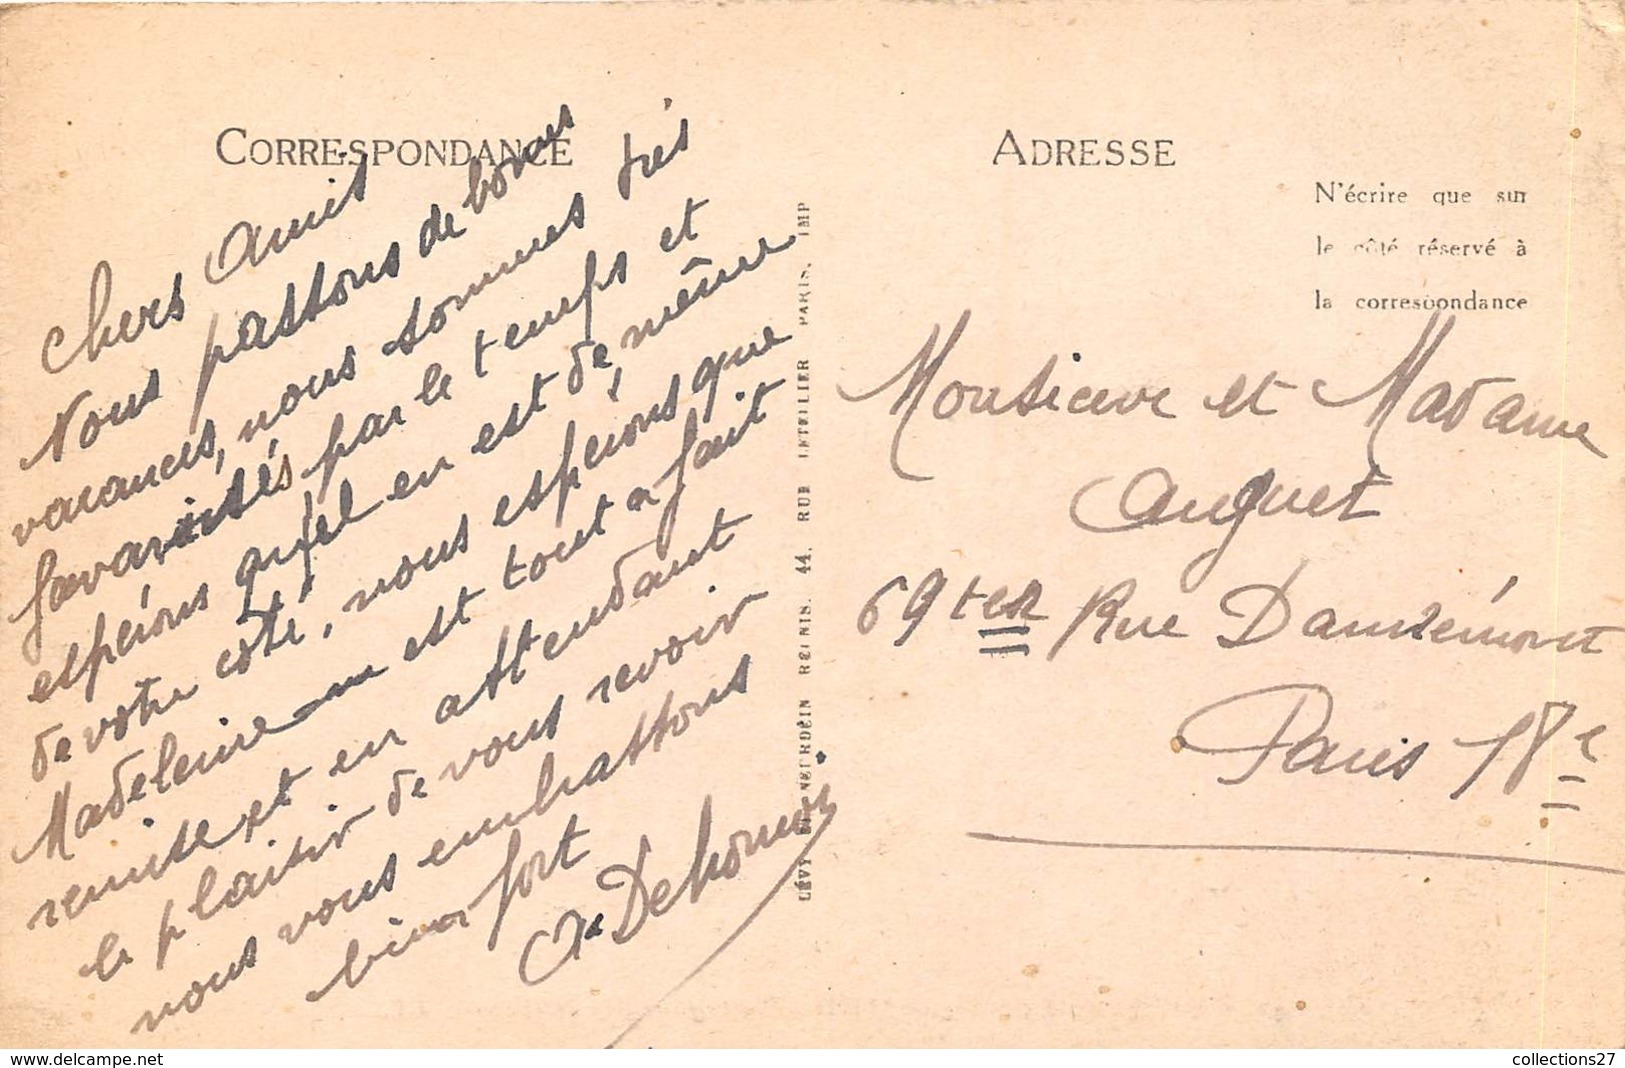 CORRESPONDANCE
Chers Amis
Nous passons de bonnes
vacances, nous sommes très
favorisés par le temps et
espérons qu'el en est de même
de votre côté, nous espérons que
Madeleine est tout a fait
remise et en attendant
le plaisir de vous revoir
nous vous embrassons
bien fort
Dehornoy
LÉVY ET NEURDEIN RÉUNIS, 44, RUE LETELLIER PARIS. IMP
ADRESSE
N'écrire que sur
le côté réservé à
la correspondance
Monsieur et Madame
Auguet
69 ter Rue Damrémont
Paris 18e
www.delcampe.net
collections27